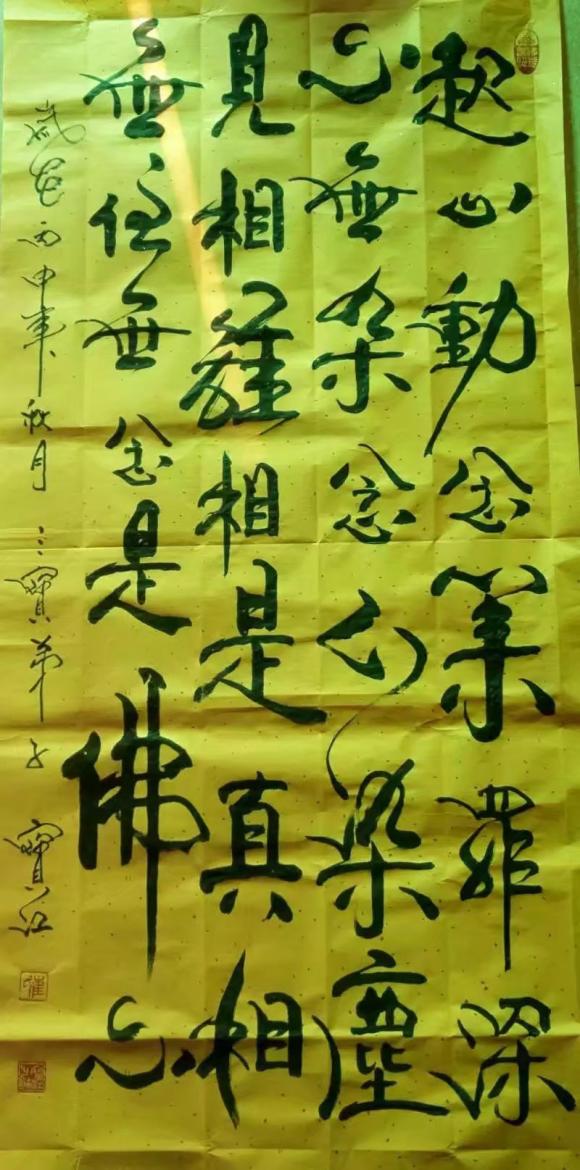 起心動念業罪深
心無杂念染塵
見相離相是真相
無住無念是佛心
歲丙申年秋月 三寶弟子 寶江
崔